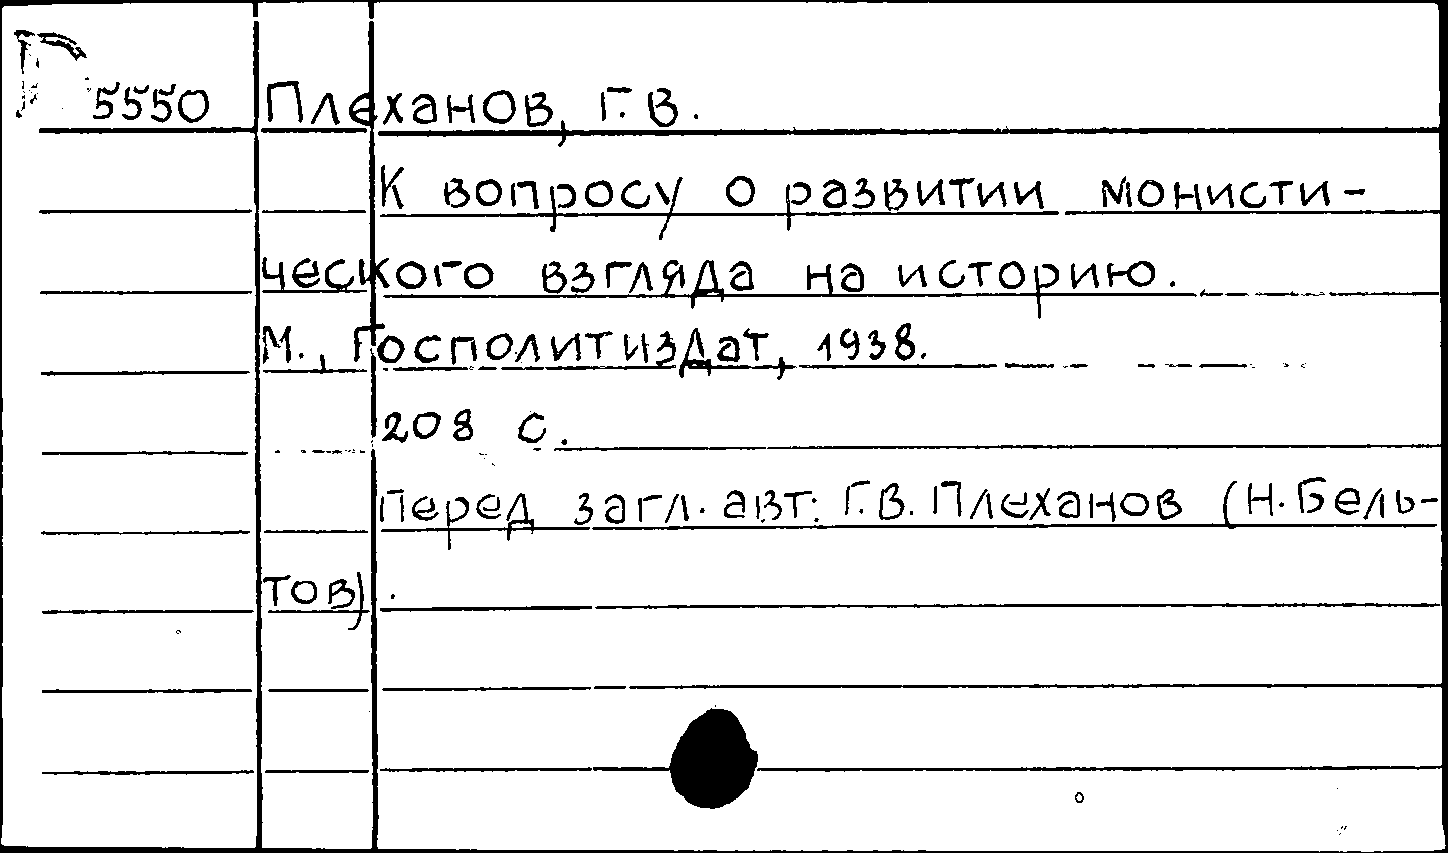 5550 Плеханов, Г.В.
К вопросу о развитии монисти-
ческого взгляда на историю.
М., Госполитиздат, 1938.
208 с.
Перед загл. авт: Г.В. Плеханов (Н. Бель-
тов).